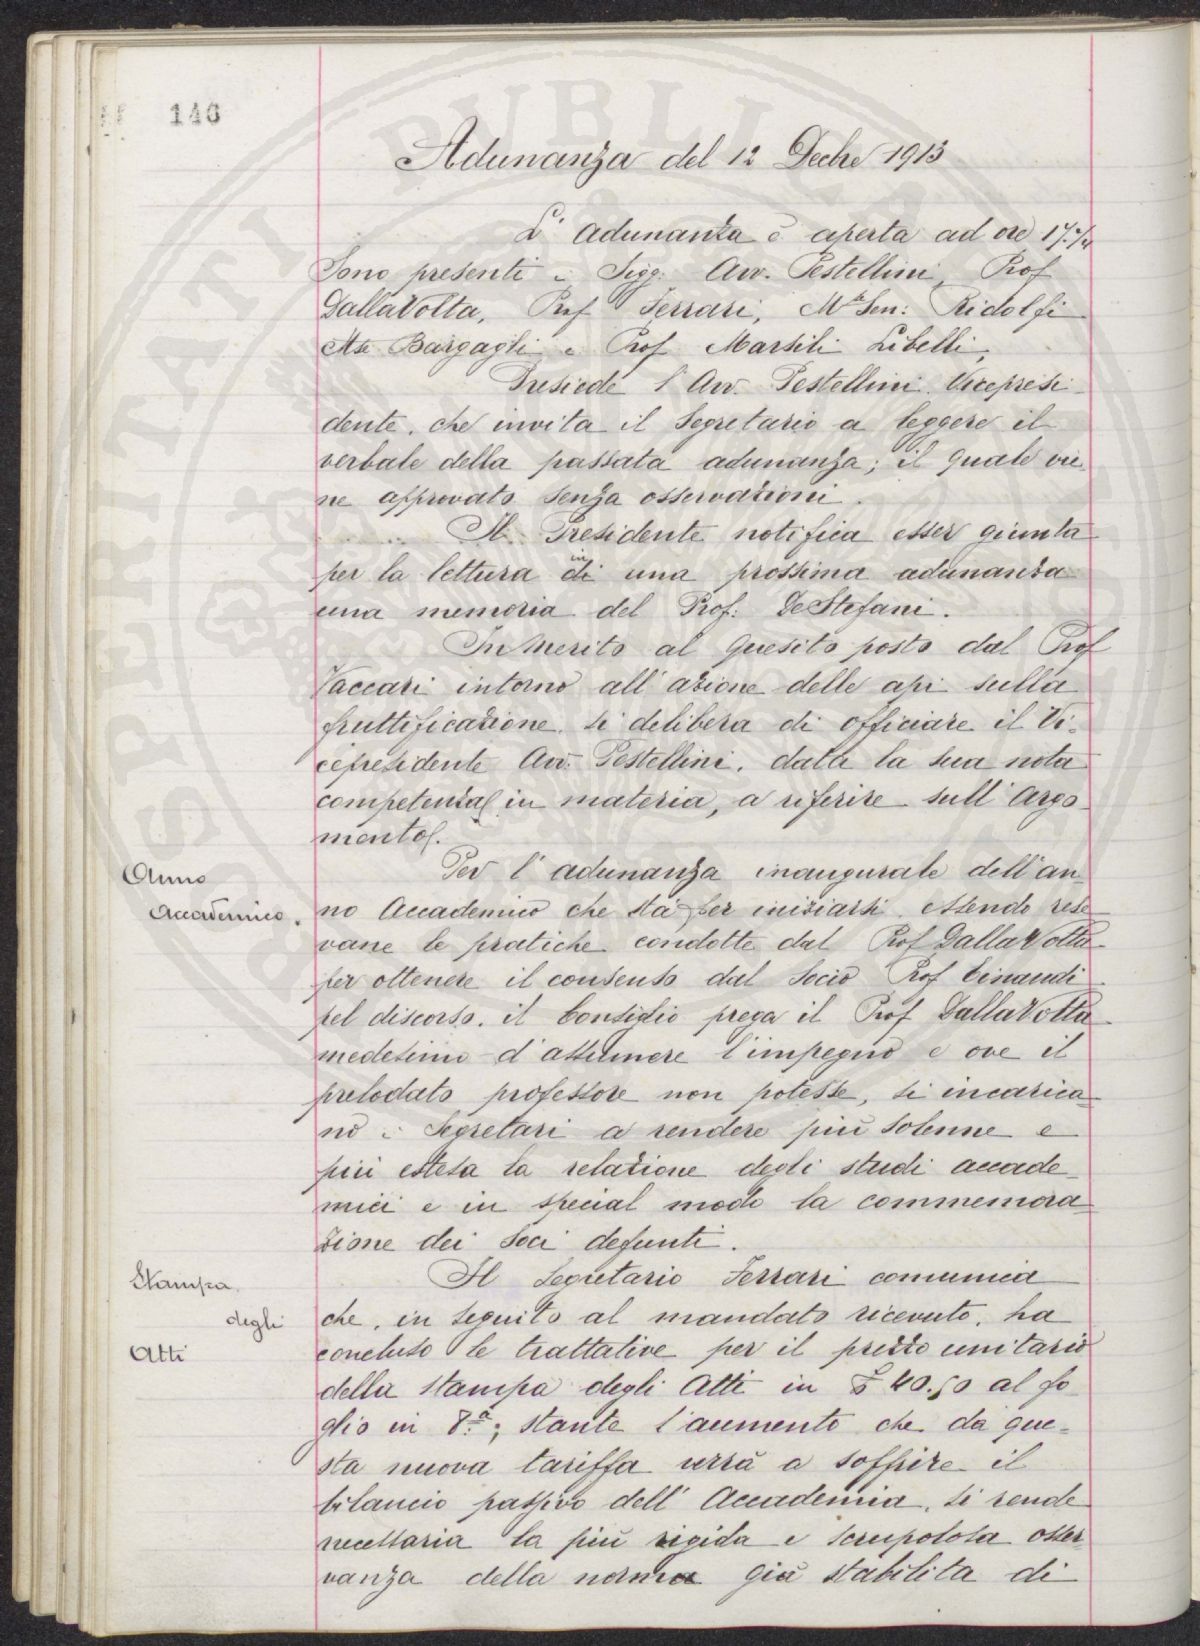 146
Adunanza del 12 Decbre 1913
L'adunanza è aperta ad ore 17.
Sono presenti i Sigg: Avv. Pestellini, Prof
DallaVolta, Prof Ferrari, Mse Sen: Ridolfi
Mse Bargagli e Prof Marsili Libelli,
Presiede l'Avv. Pestellini Vicepresi-
dente, che invita il Segretario a leggere il
verbale della passata adunanza; il quale vie-
ne approvato senza osservazioni.
Il Presidente notifica esser giunta
per la lettura in di una prossima adunanza
una memoria del Prof: DeStefani.
In merito al quesito posto dal Prof
Vaccari intorno all'azione delle api sulla
fruttificazione, si delibera di officiare il Vi-
cepresidente Avv. Pestellini, data la sua nota
competenza in materia, a riferire sull'argo-
mento.
Anno
Accademico.
Per l'adunanza inaugurale dell'an-
no Accademico che sta per iniziarsi, essendo rese
vane le pratiche condotte dal Prof DallaVolta
per ottenere il consenso dal Socio Prof Einaudi
pel discorso, il Consiglio prega il Prof DallaVolta
medesimo d'assumere l'impegno e ove il
prelodato professore non potesse, si incarica-
no i Segretari a rendere più solenne e
più estesa la relazione degli studi accade-
mici e in special modo la commemora-
zione dei Soci defunti.
Stampa
degli
Atti
Il Segretario Ferrari comunica
che, in seguito al mandato ricevuto, ha
concluso le trattative per il prezzo unitario
della stampa degli Atti in £ 40.50 al fo-
glio in 8.a; stante l'aumento che da que-
sta nuova tariffa verrà a soffrire il
bilancio passivo dell'Accademia, si rende
necessaria la più rigida e scrupolosa osser-
vanza della norma già stabilita di
PUBLICAE
PROSPERITATI